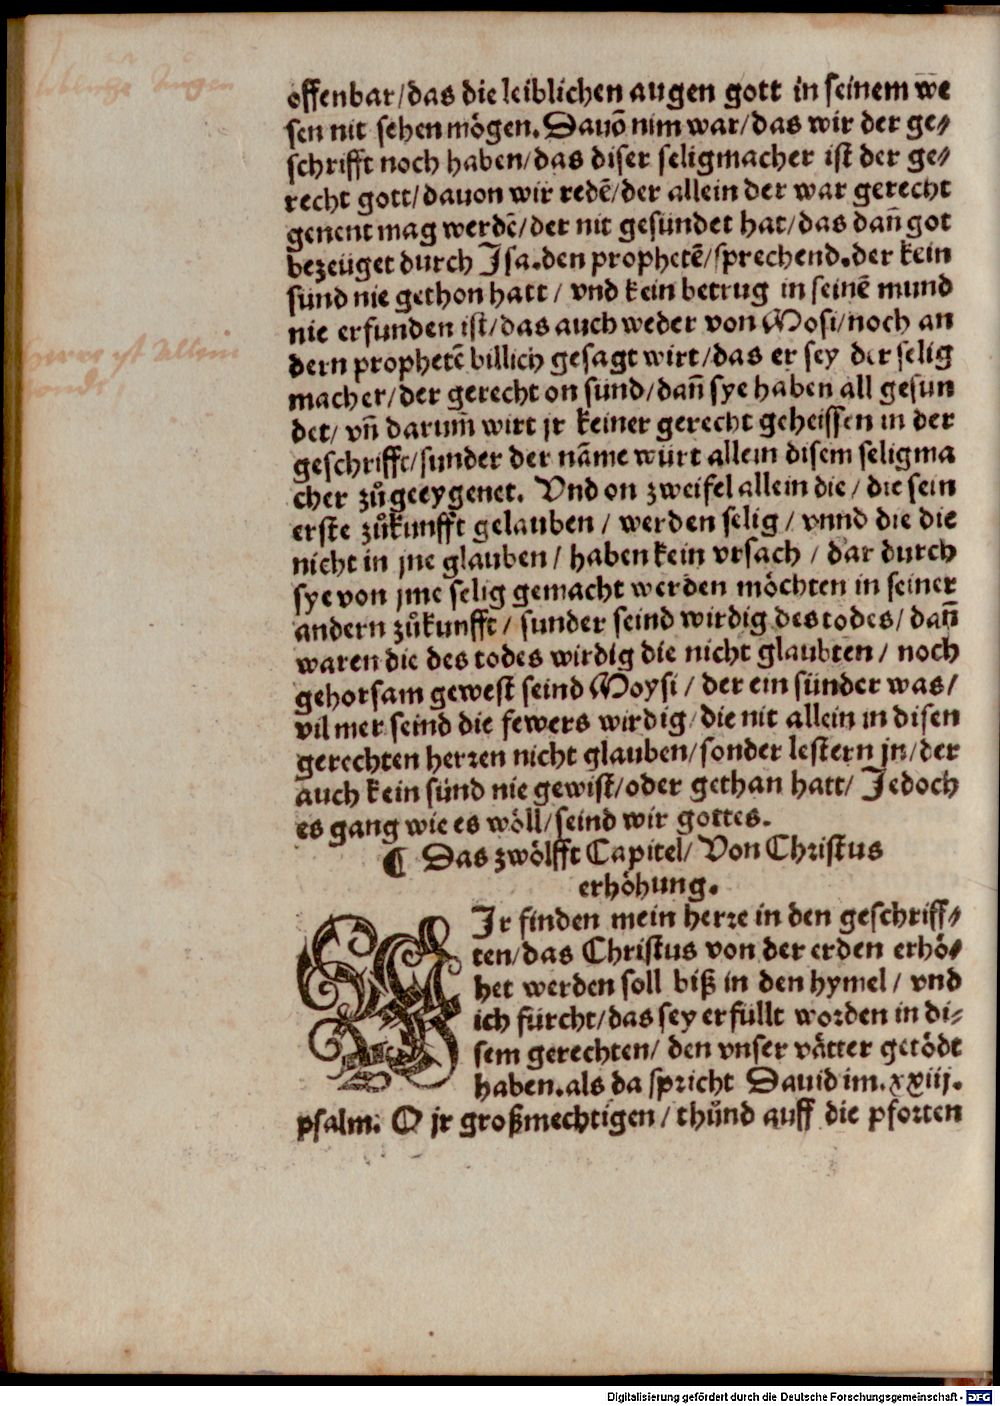 offenbar/das die leiblichen augen gott in seinem we̅
sen nit sehen mögen. Dauō nim war/das wir der ge⸗
schrifft noch haben/das diser seligmacher ist der ge⸗
recht gott/dauon wir redē/der allein der war gerecht
genent mag werdē/der nit gesündet hat/das dañ got
bezeüget durch Jsa.den prophetē/sprechend.der kein
sünd nie gethon hatt / vnd kein betrug in seinē mund
nie erfunden ist/das auch weder von Mosi/noch an
dern prophetē billich gesagt wirt/das er sey der selig
macher/der gerecht on sünd/dañ sye haben all gesun
det/ vñ darum̃ wirt jr keiner gerecht geheissen in der
geschrifft/sunder der nāme würt allein disem seligma
cher zůgeeygenet. Vnd on zweifel allein die/ die sein
erste zůkunfft gelauben / werden selig / vnnd die die
nicht in jne glauben / haben kein vrsach / dar durch
sye von jme selig gemacht werden möchten in seiner
andern zůkunfft / sunder seind wirdig des todes/ dañ
waren die des todes wirdig die nicht glaubten / noch
gehorsam gewest seind Moysi / der ein sünder was/
vil mer seind die fewers wirdig/die nit allein in disen
gerechten herren nicht glauben/sonder lestern jn/der
auch kein sünd nie gewist/oder gethan hatt/ Jedoch
es gang wie es wöll/seind wir gottes.
¶ Das zwölfft Capitel/ Von Christus
erhöhung.
WJr finden mein herre in den geschriff⸗
ten/das Christus von der erden erhö⸗
het werden soll biß in den hymel / vnd
ich fürcht/das sey erfüllt worden in di⸗
sem gerechten/ den vnser vätter getödt
haben.als da spricht Dauid im.xxiij.
psalm. O jr großmechtigen / thůnd auff die pforten
Digitalisierung gefördert durch die Deutsche Forschungsgemeinschaft - DFG